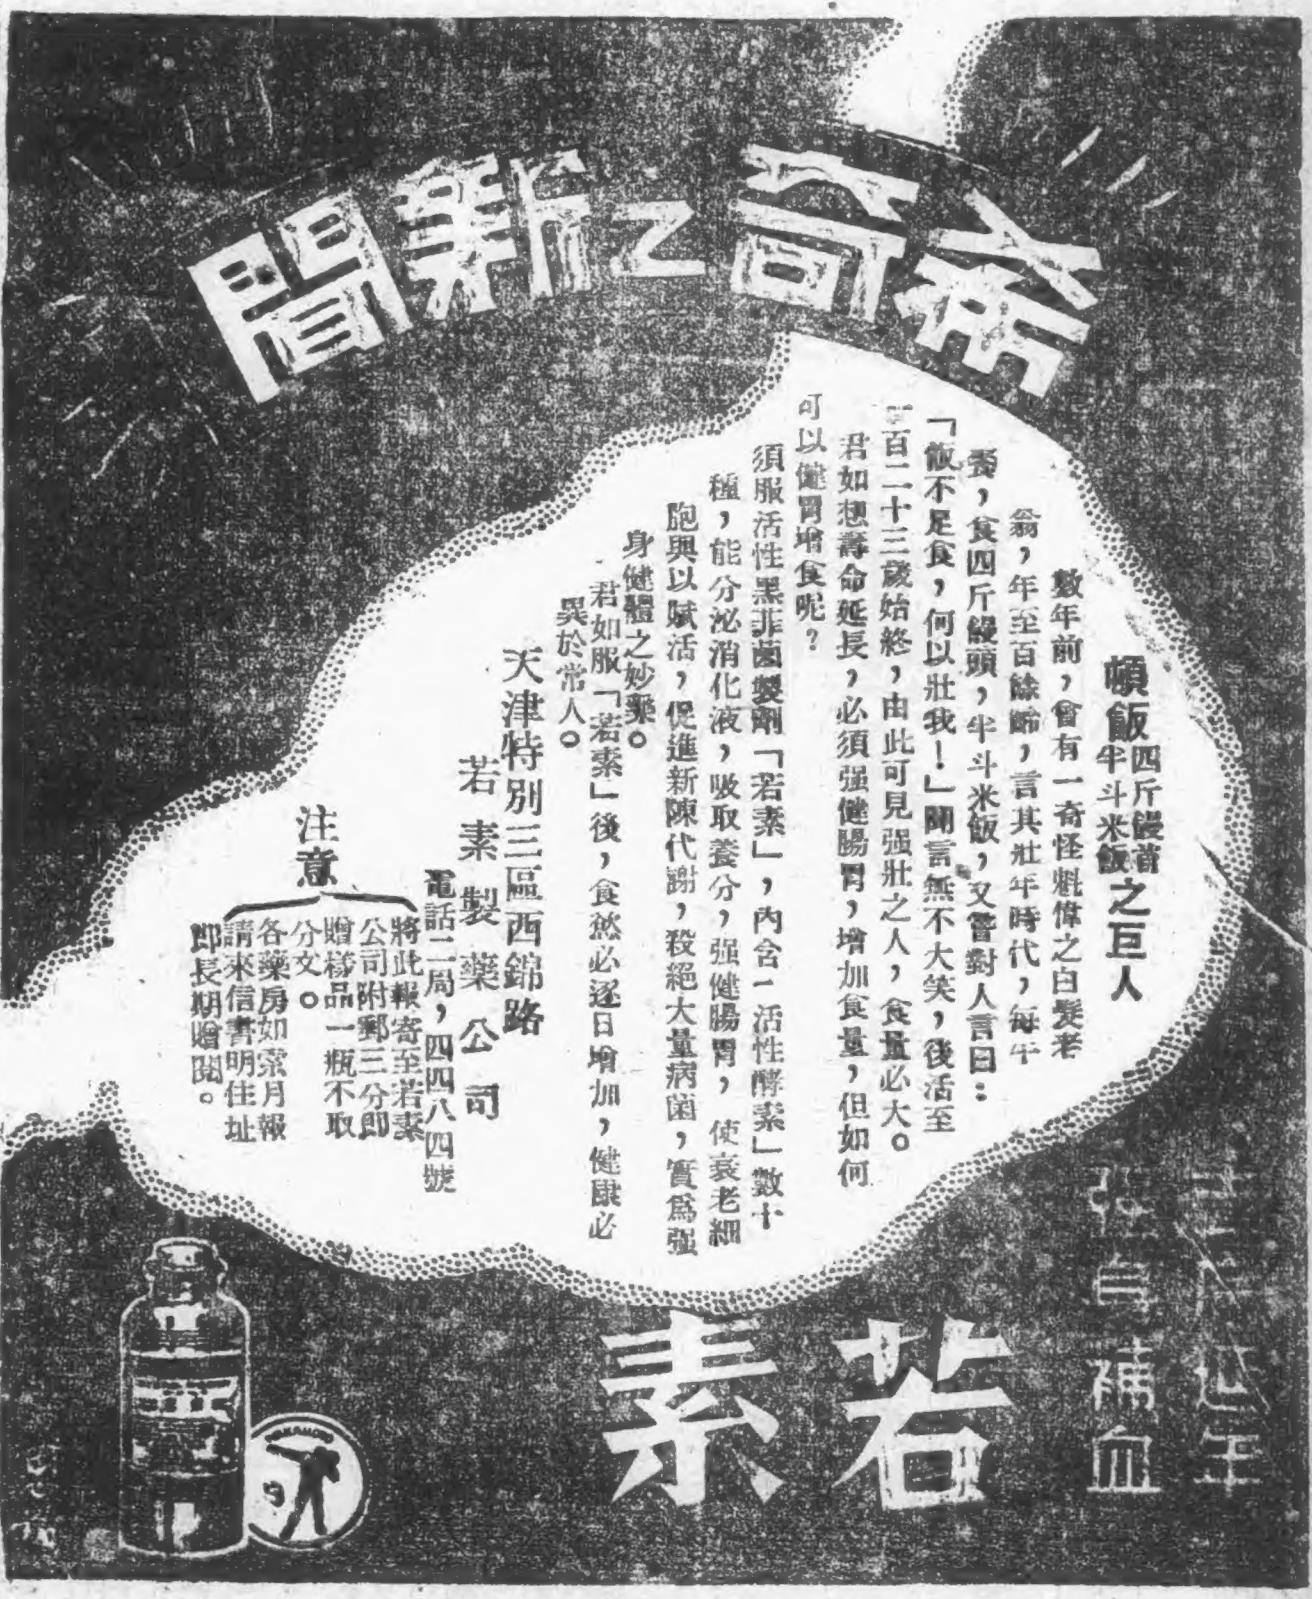 希奇之新聞
頓飯四斤饅首半斗米飯之巨人
數年前，曾有一奇怪魁偉之白髮老
翁，年至百餘齡，言其壯年時代，每午
餐，食四斤饅頭，半斗米飯，又嘗對人言曰：
「飯不足食，何以壯我！」聞言無不大笑，後活至
百二十三歲始終，由此可見强壯之人，食量必大。
君如想壽命延長，必須强健腸胃，增加食量，但如何
可以健胃增食呢？
須服活性黑菲菌製劑「若素」，內含「活性酵素」數十
種，能分泌消化液，吸取養分，强健腸胃，使衰老細
胞與以賦活，促進新陳代謝，殺絕大量病菌，實爲强
身健體之妙藥。
君如服「若素」後，食慾必逐日增加，健康必
異於常人。
天津特別三區西錦路
若素製藥公司
電話二局，四四八四號
注意
將此報寄至若素
公司附郵三分即
贈樣品一瓶不取
分文。
各藥房如索月報
請來信書明住址
即長期贈閱。
延年
補血
若素